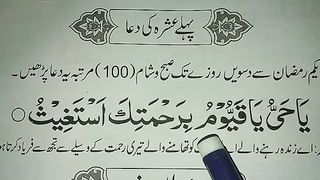 پہلے عشرہ کی دعا
یکم رمضان سے دسویں روزے تک صبح و شام (100) مرتبہ یہ دعا پڑھیں۔
يَا حَيُّ يَا قَيُّوْمُ بِرَحْمَتِكَ اَسْتَغِيْثُ
اے زندہ رہنے والے اے کو تھامنے والے تیری رحمت کے وسیلے سے تجھ سے فریاد کرتا ہو